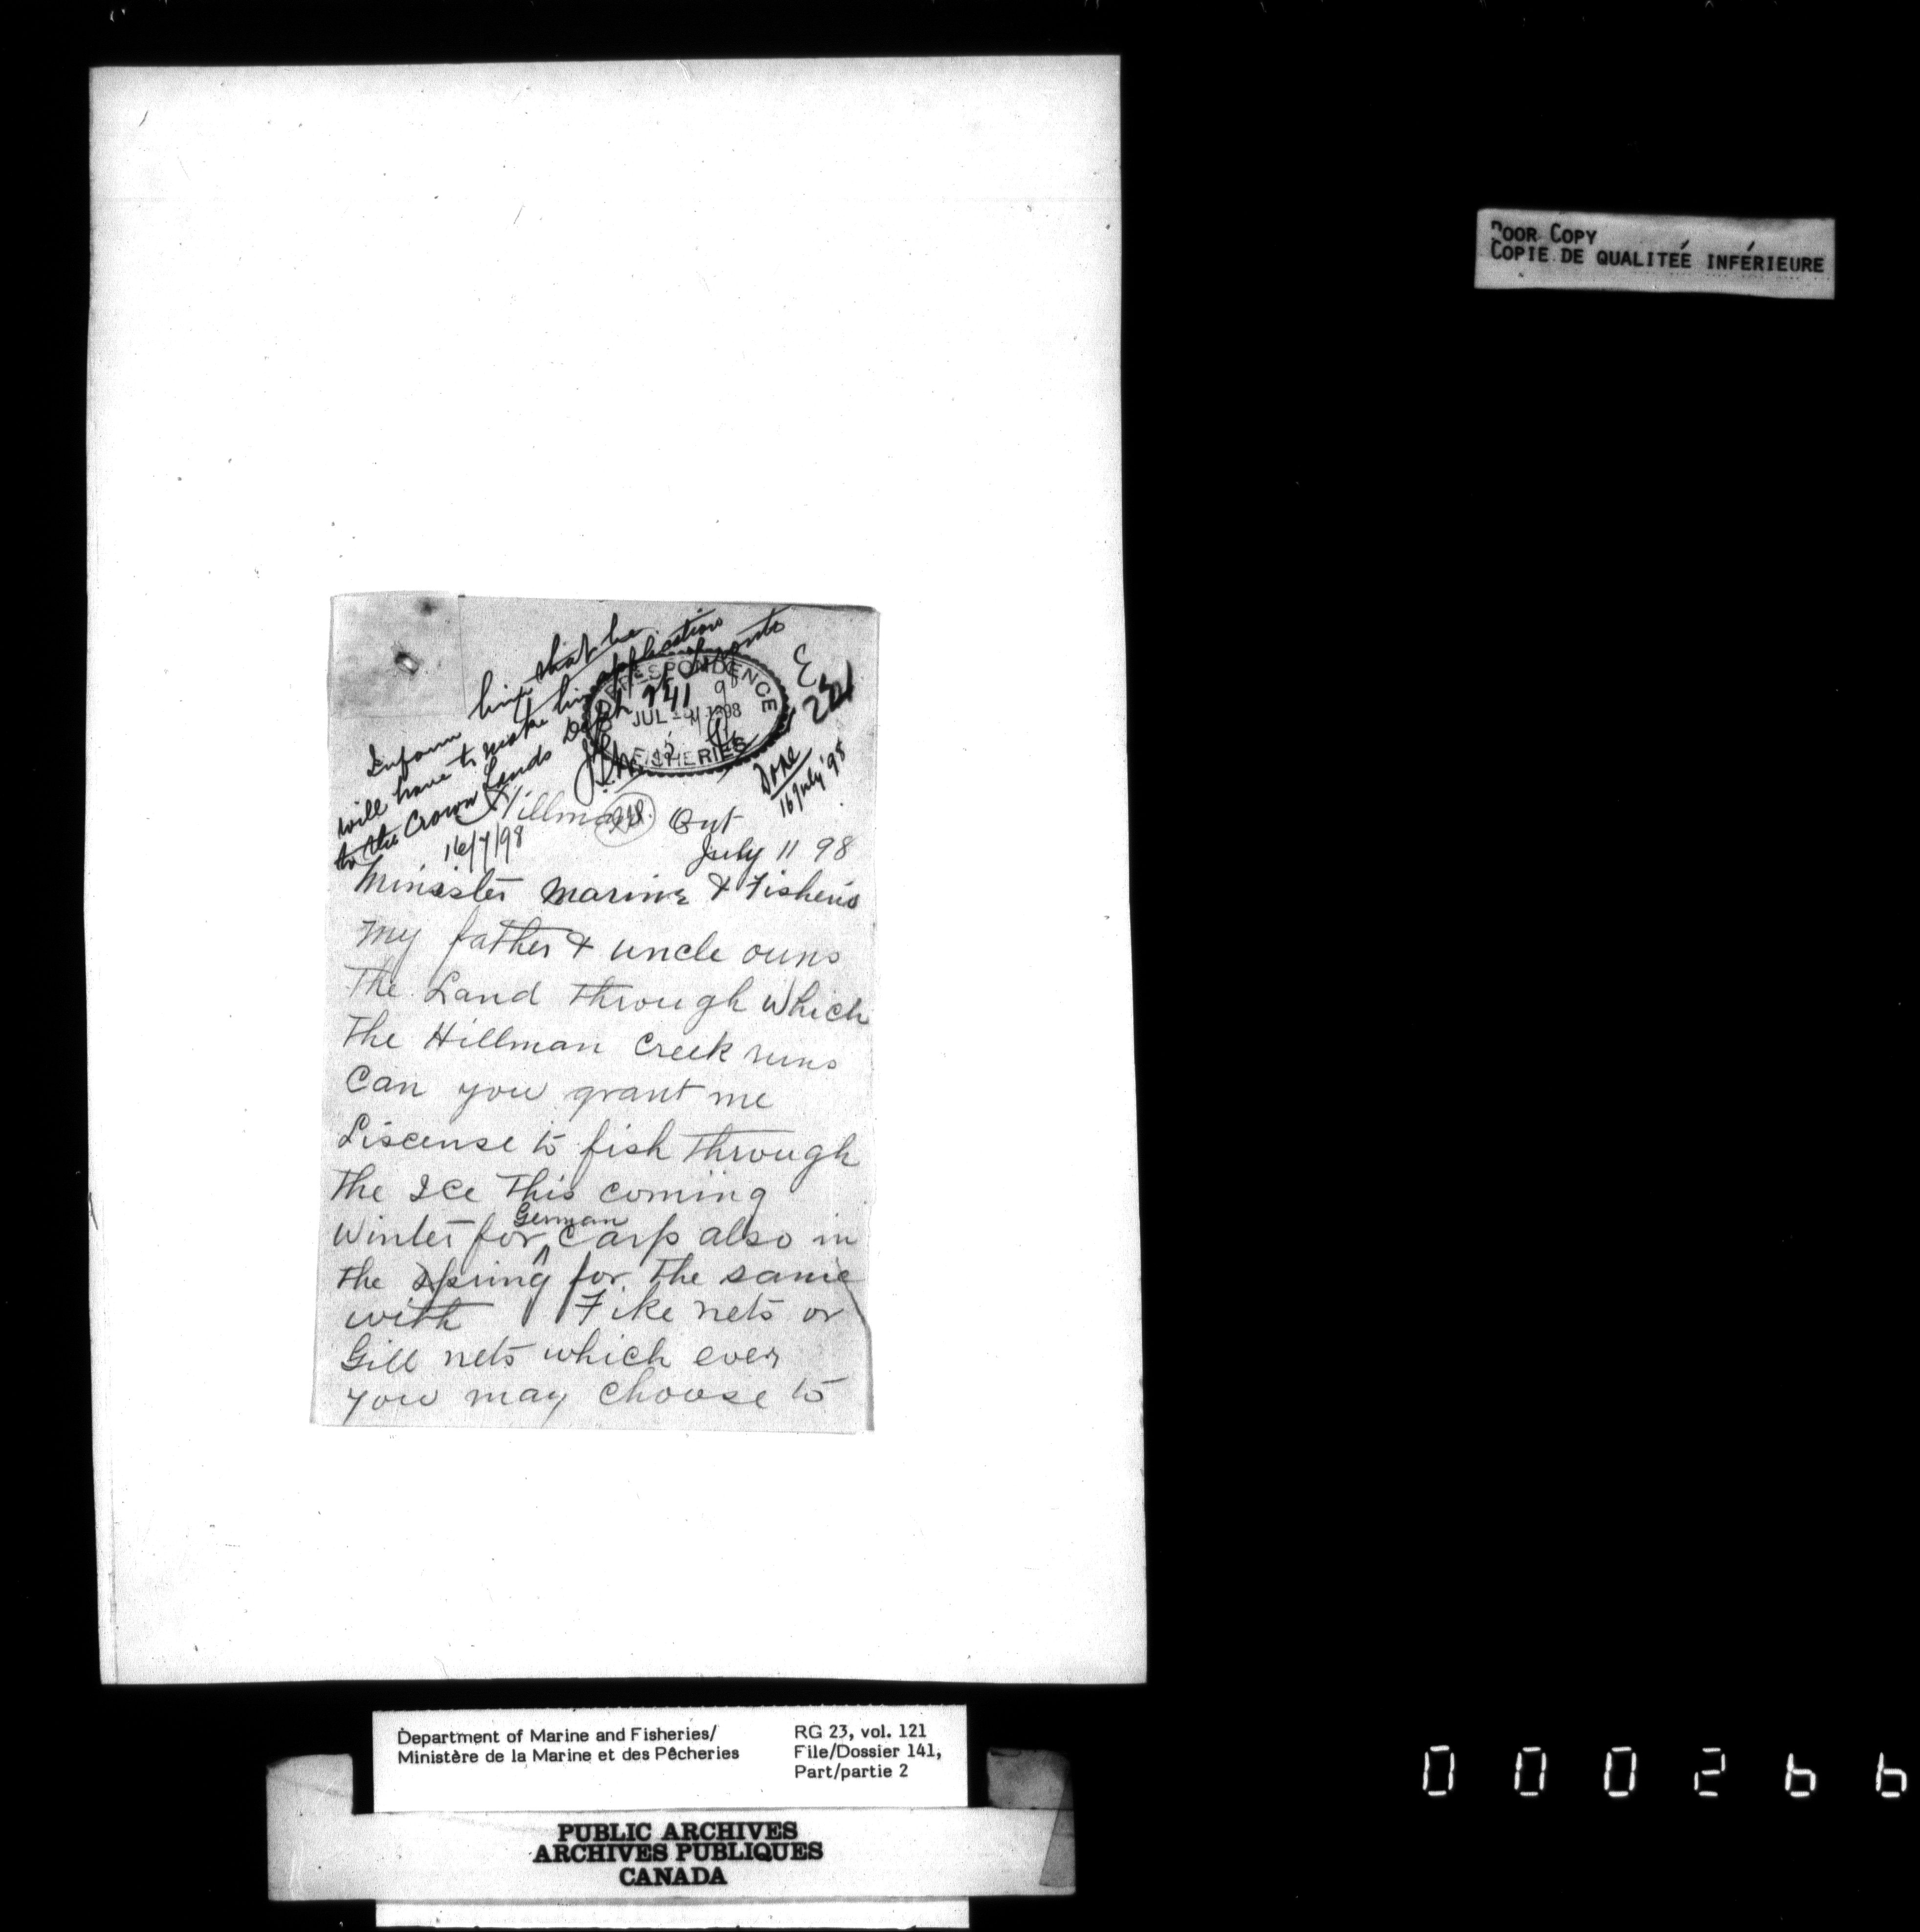 POOR COPY
COPIE DE QUALITEÉ INFÉRIEURE
Inform him that he
will have to make his application
to the Crown Lands Dept Toronto
16/7/98
CORRESPONDENCE
941
98
JUL 1898
FISHERIES
E
Done
16 July '98
Hillman Ont
July 11 98
Minister Marine & Fisheris
My father & uncle owns
The Land through Which
The Hillman Creek runs
Can you grant me
Liscense to fish through
The Ice This coming
Winter for German Carp also in
The Spring for the same
with Fike nets or
Gill nets which ever
you may choose to
Department of Marine and Fisheries/
Ministère de la Marine et des Pêcheries
RG 23, vol. 121
File/Dossier 141,
Part/partie 2
PUBLIC ARCHIVES
ARCHIVES PUBLIQUES
CANADA
000266